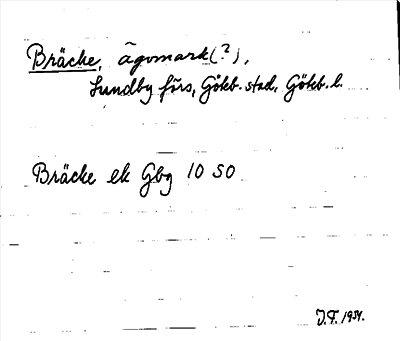 Bräcke, ägomark(?),
Lundby förs, Göteb. stad, Göteb. l.
Bräcke ek Gbg 10 SO
J.F. 1934.